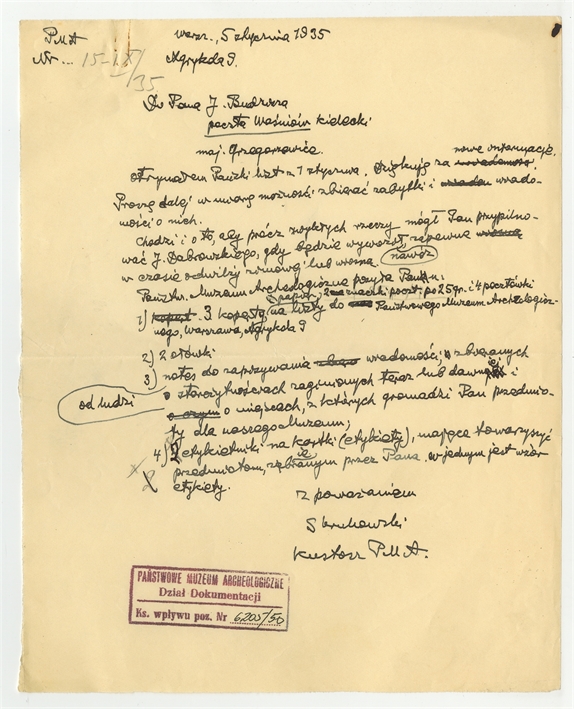 P.M.A
Nr... 15-IX/35
Warsz., 5 stycznia 1935
Agrykola 9.
Do Pana J. Budziera
poczta Waśniów kielecki
maj. Grzegorzowice.
nowe informacje.
otrzymałem Pański list z 1 stycznia. Dziękuję za wiadomość
Proszę dalej w miarę możności zbierać zabytki i wiado-
mości o nich.
Chodzi i o to, aby prócz zwykłych rzeczy mógł Pan przypilno-
wać J. Dąbrowskiego, gdy będzie wywoził, zapewne wiosną nawóz
w czasie odwilży zimowej lub wiosną.
Państw. Muzeum Archeologiczne posyła Panu:
1) kopert 3 koperty, papier, 2 znaczki poczt. po 25 gr. i 4 pocztówki
na listy do Państwowego Muzeum Archeologicz-
nego, Warszawa, Agrykola 9
2) 2 ołówki
3) notes do zapisywania wiadomości, zbieranych
od ludzi
o starożytnościach zaginionych teraz lub dawniej i
o czym o miejscach, z których gromadzi Pan przedmio-
ty dla naszego Muzeum;
4) 2 etykietniki na kartki (etykiety), mające towarzyszyć
przedmiotom, zebranym przez Pana. w jednym jest wzór
etykiety.
Z poważaniem
S Krukowski
Kustosz P.M.A.
PAŃSTWOWE MUZEUM ARCHEOLOGICZNE
Dział Dokumentacji
Ks. wpływu poz. Nr 6200/50